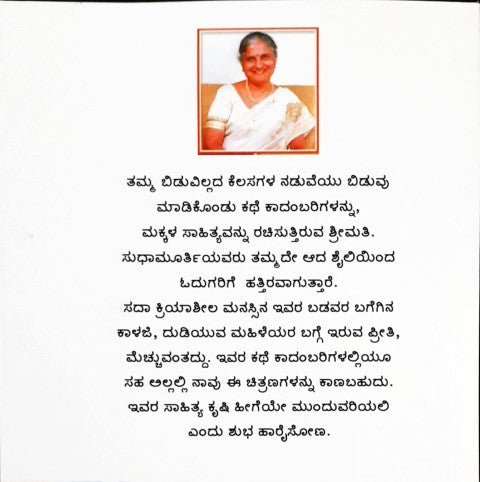 ತಮ್ಮ ಬಿಡುವಿಲ್ಲದ ಕೆಲಸಗಳ ನಡುವೆಯು ಬಿಡುವು
ಮಾಡಿಕೊಂಡು ಕಥೆ ಕಾದಂಬರಿಗಳನ್ನು,
ಮಕ್ಕಳ ಸಾಹಿತ್ಯವನ್ನು ರಚಿಸುತ್ತಿರುವ ಶ್ರೀಮತಿ.
ಸುಧಾಮೂರ್ತಿಯವರು ತಮ್ಮದೇ ಆದ ಶೈಲಿಯಿಂದ
ಓದುಗರಿಗೆ ಹತ್ತಿರವಾಗುತ್ತಾರೆ.
ಸದಾ ಕ್ರಿಯಾಶೀಲ ಮನಸ್ಸಿನ ಇವರ ಬಡವರ ಬಗೆಗಿನ
ಕಾಳಜಿ, ದುಡಿಯುವ ಮಹಿಳೆಯರ ಬಗ್ಗೆ ಇರುವ ಪ್ರೀತಿ,
ಮೆಚ್ಚುವಂತದ್ದು. ಇವರ ಕಥೆ ಕಾದಂಬರಿಗಳಲ್ಲಿಯೂ
ಸಹ ಅಲ್ಲಲ್ಲಿ ನಾವು ಈ ಚಿತ್ರಣಗಳನ್ನು ಕಾಣಬಹುದು.
ಇವರ ಸಾಹಿತ್ಯ ಕೃಷಿ ಹೀಗೆಯೇ ಮುಂದುವರಿಯಲಿ
ಎಂದು ಶುಭ ಹಾರೈಸೋಣ.